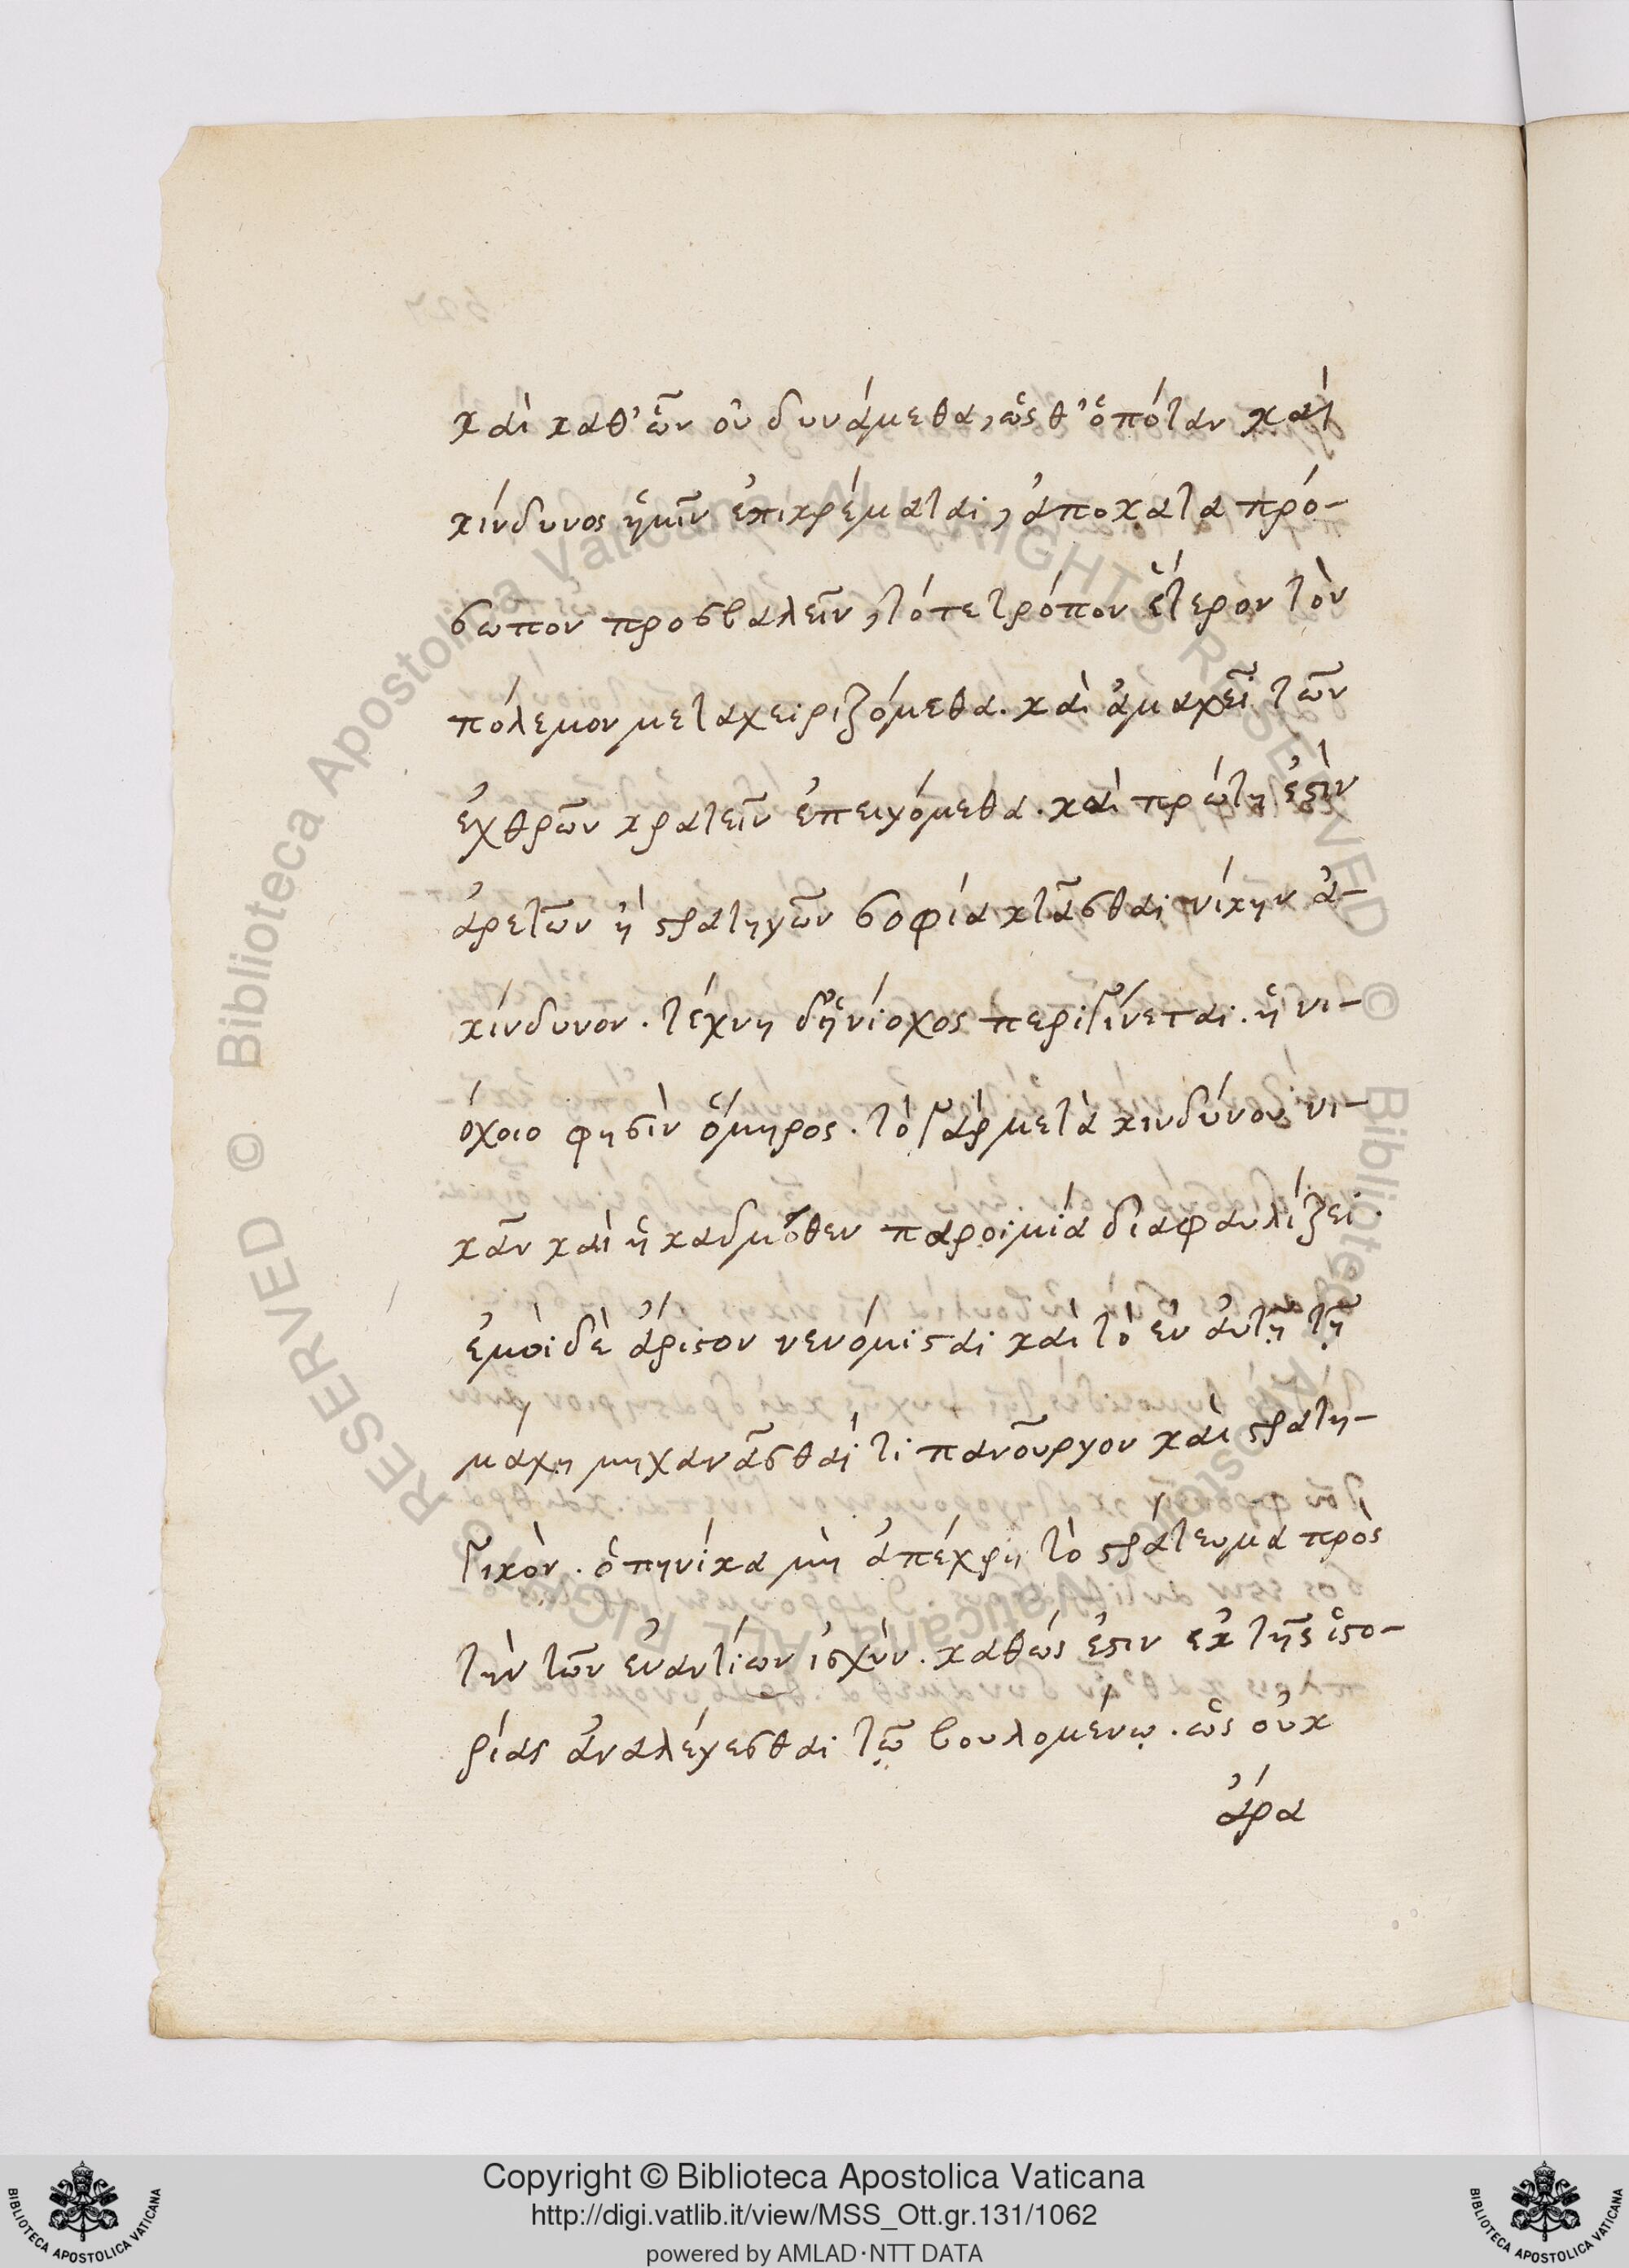 καὶ καθ' ὧν οὐ δυνάμεθα, ὥς θ' ὁπόταν καὶ
κίνδυνος ἡμῖν ἐπικρέμαται, ἀποκατα πρό-
σωπον προσβαλεῖν, τότε τρόπον ἕτερον τὸν
πόλεμον μεταχειριζόμεθα. καὶ ἀμαχεῖ τῶν
ἐχθρῶν κρατεῖν ἐπειγόμεθα. καὶ πρώτη ἐστὶν
ἀρετῶν ἡ στρατηγῶν σοφία κτᾶσθαι νίκην ἀ-
κίνδυνον. τέχνη δ' ἡνίοχος περιγίνεται. ἡνι-
όχοιο φησὶν ὅμηρος. τὸ γὰρ μετὰ κινδύνου νι-
κᾶν καὶ ἡ καδμόθεν παροιμία διαφαυλίζει.
ἐμοὶ δὲ ἄριστον νενόμισται καὶ τὸ ἐν αὐτῇ τῇ
μάχῃ μηχανᾶσθαί τι πανοῦργον καὶ στρατη-
γικὸν. ὁπηνίκα μὴ ἀπέχρη τὸ στράτευμα πρὸς
τὴν τῶν ἐναντίων ἰσχὺν. καθώς ἐστιν ἐκ τῆς ἱστο-
ρίας ἀναλέγεσθαι τῷ βουλομένῳ. ὡς οὐκ
ἄρα
Copyright © Biblioteca Apostolica Vaticana
http://digi.vatlib.it/view/MSS_Ott.gr.131/1062
powered by AMLAD·NTT DATA